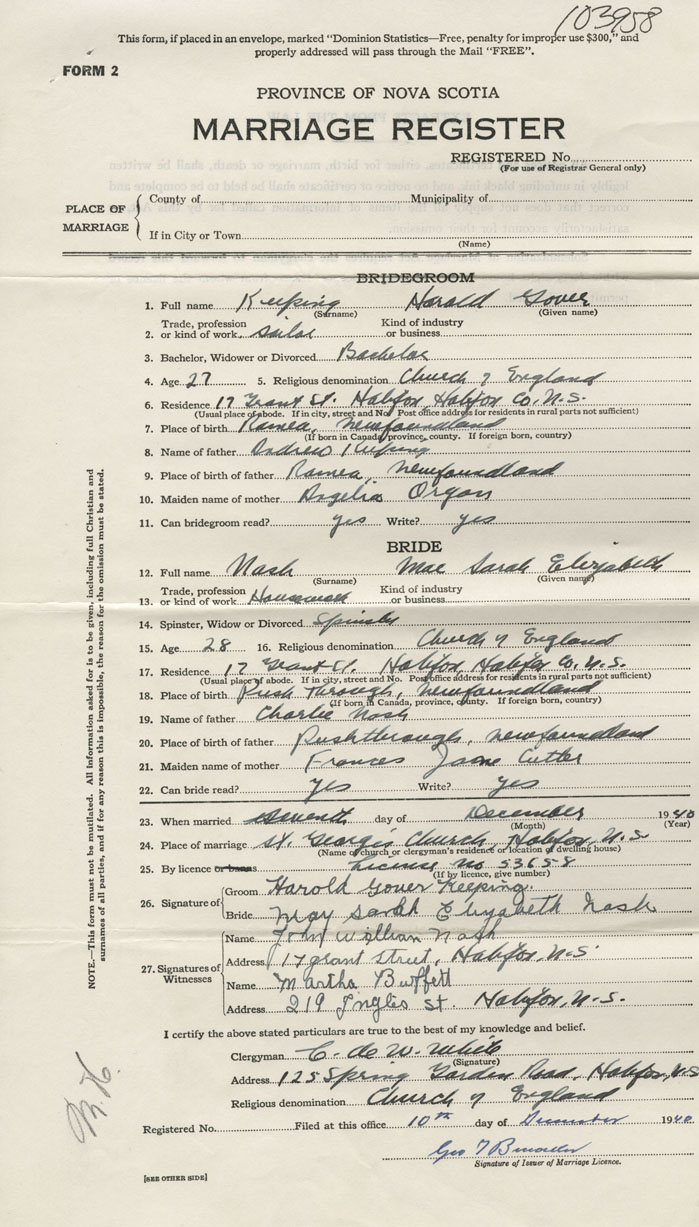 103958
This form, if placed in an envelope, marked "Dominion Statistics—Free, penalty for improper use $300," and
properly addressed will pass through the Mail "FREE".
FORM 2
PROVINCE OF NOVA SCOTIA
MARRIAGE REGISTER
REGISTERED No.
(For use of Registrar General only)
PLACE OF MARRIAGE
County of Municipality of
If in City or Town
(Name)
BRIDEGROOM
1. Full name Keeping Harald Gover
(Surname) (Given name)
Trade, profession Kind of industry
2. or kind of work sailor or business
3. Bachelor, Widower or Divorced Bachelor
4. Age 27 5. Religious denomination Church of England
6. Residence 17 Grant St. Halifax, Halifax Co. N.S.
(Usual place of abode. If in city, street and No. Post office address for residents in rural parts not sufficient)
7. Place of birth Ramea, Newfoundland
(If born in Canada, province, county. If foreign born, country)
8. Name of father Andrew Keeping
9. Place of birth of father Ramea, Newfoundland
10. Maiden name of mother Angelia Organ
11. Can bridegroom read? yes Write? yes
BRIDE
12. Full name Nash Mae Sarah Elizabeth
(Surname) (Given name)
Trade, profession Kind of industry
13. or kind of work Housework or business
14. Spinster, Widow or Divorced Spinster
15. Age 28 16. Religious denomination Church of England
17. Residence 17 Grant St. Halifax, Halifax Co. N.S.
(Usual place of abode. If in city, street and No. Post office address for residents in rural parts not sufficient)
18. Place of birth Push Through, Newfoundland
(If born in Canada, province, county. If foreign born, country)
19. Name of father Charlie Nash
20. Place of birth of father Pushthrough, Newfoundland
21. Maiden name of mother Frances Jane Cutler
22. Can bride read? yes Write? yes
23. When married Seventh day of December 1940
(Month) (Year)
24. Place of marriage St. George's Church, Halifax, N.S.
(Name of church or clergyman's residence or location of dwelling house)
25. By licence or banns License No 53658
(If by licence, give number)
26. Signature of
Groom Harold Gover Keeping.
Bride May Sarah Elizabeth Nash
27. Signatures of Witnesses
Name John William Nash
Address 17 grant street, Halifax, N.S.
Name Martha Buffett
Address 219 Ingles st. Halifax, N.S.
I certify the above stated particulars are true to the best of my knowledge and belief.
Clergyman C. de W. White
(Signature)
Address 125 Spring Garden Road, Halifax, N.S
Religious denomination Church of England
Registered No. Filed at this office 10th day of December 1940
Geo
Signature of Issuer of Marriage Licence.
[SEE OTHER SIDE]
NOTE.—This form must not be mutilated. All information asked for is to be given, including full Christian and
surnames of all parties, and if for any reason this is impossible, the reason for the omission must be stated.